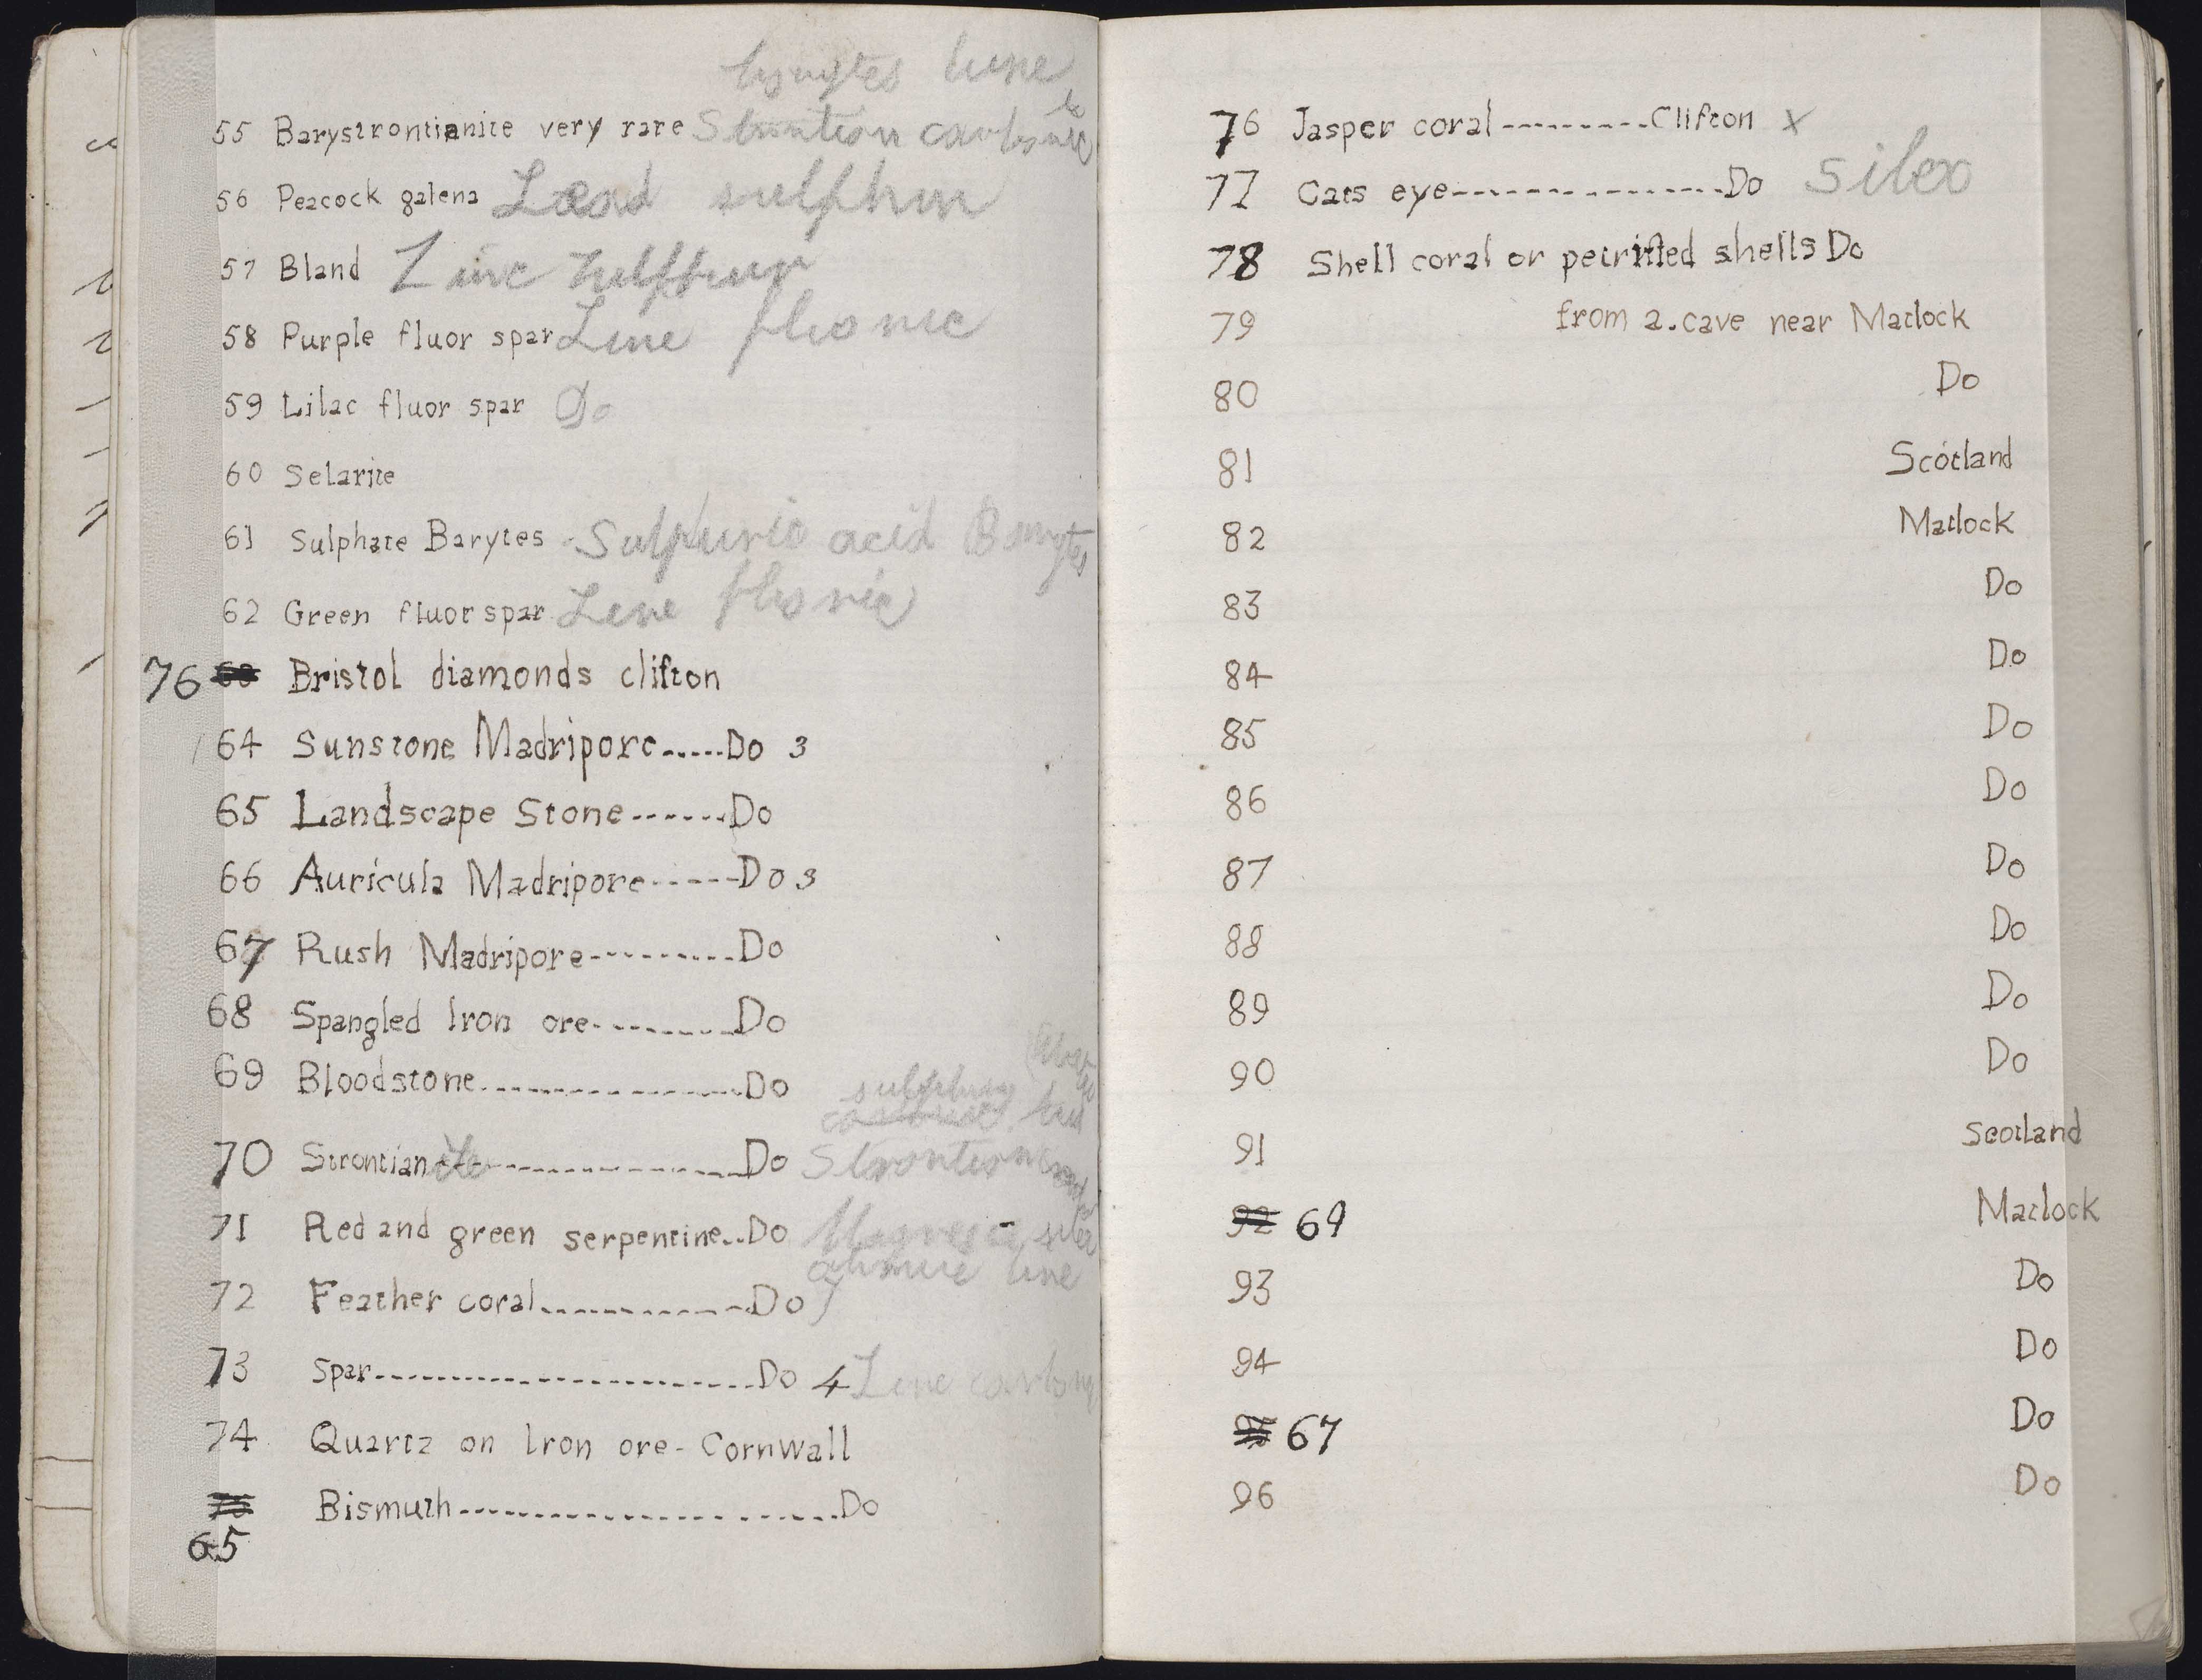 barytes lime
55 Barystrontianite very rare Strontian carbonic
56 Peacock galena Lead sulphur
57 Bland Zinc sulphur
58 Purple fluor spar Lime fluoric
59 Lilac fluor spar Do
60 Selarite
61 Sulphate Barytes Sulphuric acid Barytes
62 Green fluor spar Lime fluoric
76 Bristol diamonds clifton
64 Sunstone Madripore.....Do 3
65 Landscape Stone-------Do
66 Auricula Madripore------Do 3
67 Rush Madripore----------Do
68 Spangled Iron ore---------Do
69 Bloodstone-----------------Do
sulphur
70 Strontianite------------------Do Strontian
71 Red and green serpentine..Do Magnesia silex
lime
72 Feather coral-------------Do
73 Spar------------------------Do 4 Lime carbonic
74 Quartz on Iron ore-Cornwall
75 Bismuth------------------------Do
65
76 Jasper coral---------Clifton x
77 Cats eye----------------Do Silex
78 Shell coral or petrified shells Do
79 from a.cave near Matlock
80 Do
81 Scotland
82 Matlock
83 Do
84 Do
85 Do
86 Do
87 Do
88 Do
89 Do
90 Do
91 Scotland
92 69 Matlock
93 Do
94 Do
67 Do
96 Do